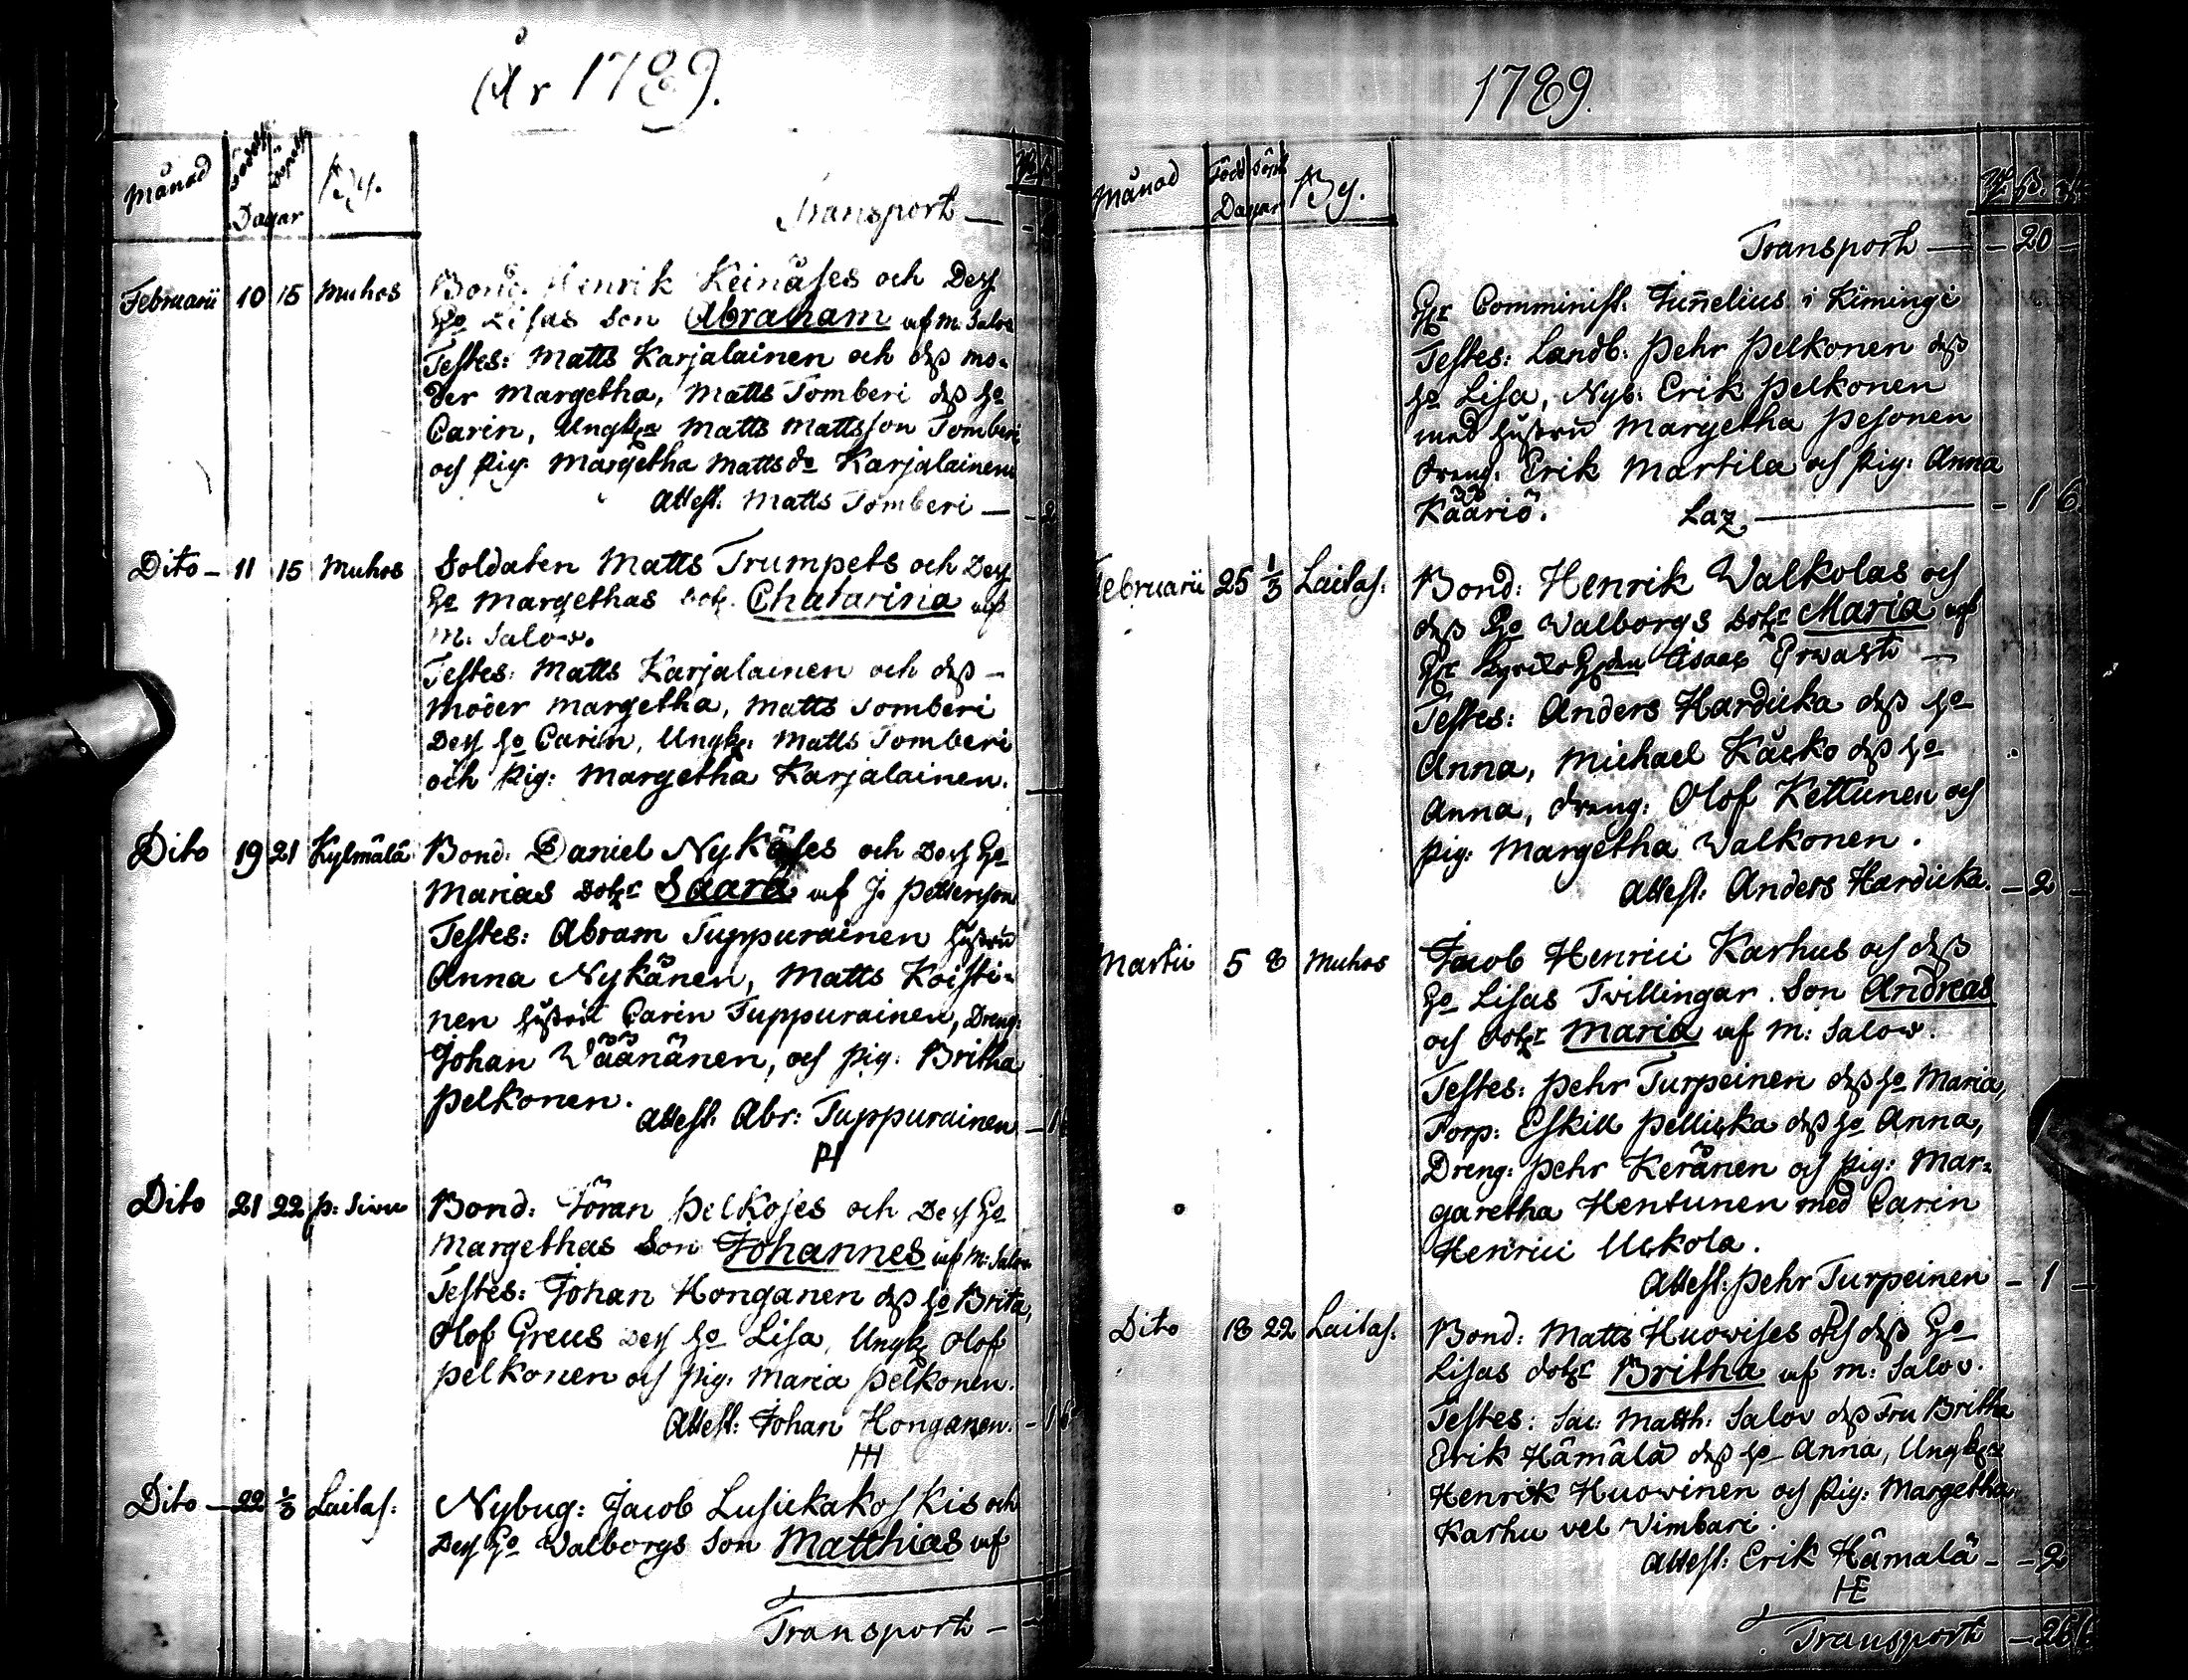 År 1789.
Månad Födelse Döpelse Dagar By.
Transport —
Februarii 10 15 Muhos Bond. Henrik Keinäses och Dess
Ho Lisas Son Abraham af M. Salov
Testes: Matts Karjalainen och dess mo-
der Margetha, Matts Tomberi dess ho
Carin, Ungk: Matts Mattsson Tomberi
och pig. Margetha Matts do Karjalainen
Attest. Matts Tomberi —
Dito — 11 15 Muhos Soldaten Matts Trumpets och Dess
Ho Margethas dotr. Chatarina af
M. Salov.
Testes: Matts Karjalainen och dess —
moder Margetha, Matts Tomberi
Dess ho Carin, Ungk: Matts Tomberi
och pig: Margetha Karjalainen.
Dito 19 21 Kylmälä Bond. Daniel Nykäses och Dess Ho
Marias Dotr Saara af J. Petterson
Testes: Abram Tuppurainen hustru
Anna Nykänen, Matts Koisti-
nen hustru Carin Tuppurainen, Dreng:
Johan Wäänänen, och pig. Britha
Pelkonen.
Attest. Abr: Tuppurainen
Dito 21 22 Bond: Jöran Pelkoses och Dess Ho
Margethas Son Johannes af M. Salov.
Testes: Johan Honganen dess ho Brita,
Olof Greus Dess ho Lisa, Ungk Olof
Pelkonen och Pig. Maria Pelkonen.
Attest: Johan Honganen. — 1 6
HH
Dito — 22 1/3 Laitas: Nybyg: Jacob Lusikakoskis och
Dess Ho Walborgs Son Matthias af
Transport —
1789.
Månad Född Döpt Dagar By.
Transport — 20 —
Hr Comminist. Junnelius i Kimingi
Testes: Landb: Pehr Pelkonen dess
ho Lisa, Nyb: Erik Pelkonen
med hustru Margetha Pesonen
dreng: Erik Martila och pig: Anna
Kääriö. Laz. — 1 6
Februarii 25 1/3 Laitas: Bond: Henrik Walkolas och
dess Ho Walborgs Dotr Maria af
Hr Isaac Erwast —
Testes: Anders Hardicka dess ho
Anna, Michael Käcko dess ho
Anna, dreng: Olof Kettunen och
pig: Margetha Walkonen.
Attest: Anders Hardicka. — 2 —
Martii 5 8 Muhos Jacob Henrici Karhus och dess
Ho Lisas Tvillingar. Son Andreas
och dotr Maria af M: Salov.
Testes: Pehr Turpeinen dess ho Maria,
Torp: Eskill Pellicka dess ho Anna,
Dreng: Pehr Keränen och pig: Mar-
garetha Hentunen med Carin
Henrici Uckola.
Attest: Pehr Turpeinen — 1 —
Dito 18 22 Laitas: Bond: Matts Huovises och dess Ho
Lisas dotr Britha af M: Salov.
Testes: Sac: Matth: Salov dess Fru Britha
Erik Hämälä dess ho Anna, Ungk:
Henrik Huovinen och Pig: Margetha
Karhu vel Vimbari.
Attest: Erik Hämälä — 2
HE
Transport — 26 6